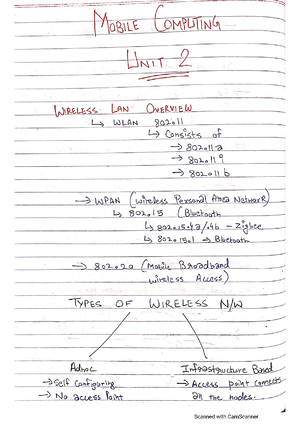 MOBILE COMPUTING
UNIT 2
WIRELESS LAN OVERVIEW
↳ WLAN 802.11
↳ Consists of
→ 802.11a
→ 802.11i
→ 802.11b
→ WPAN (Wireless Personal Area Network)
↳ 802.15 (Bluetooth
↳ 802.15.4a/.4b - Zigbee
↳ 802.15.1 → Bluetooth
→ 802.20 (Mobile Broadband
Wireless Access)
TYPES OF WIRELESS N/W
Adhoc
→ Self Configuring
→ No access point
Infrastructure Based
→ Access point connects
all the nodes.
Scanned with CamScanner